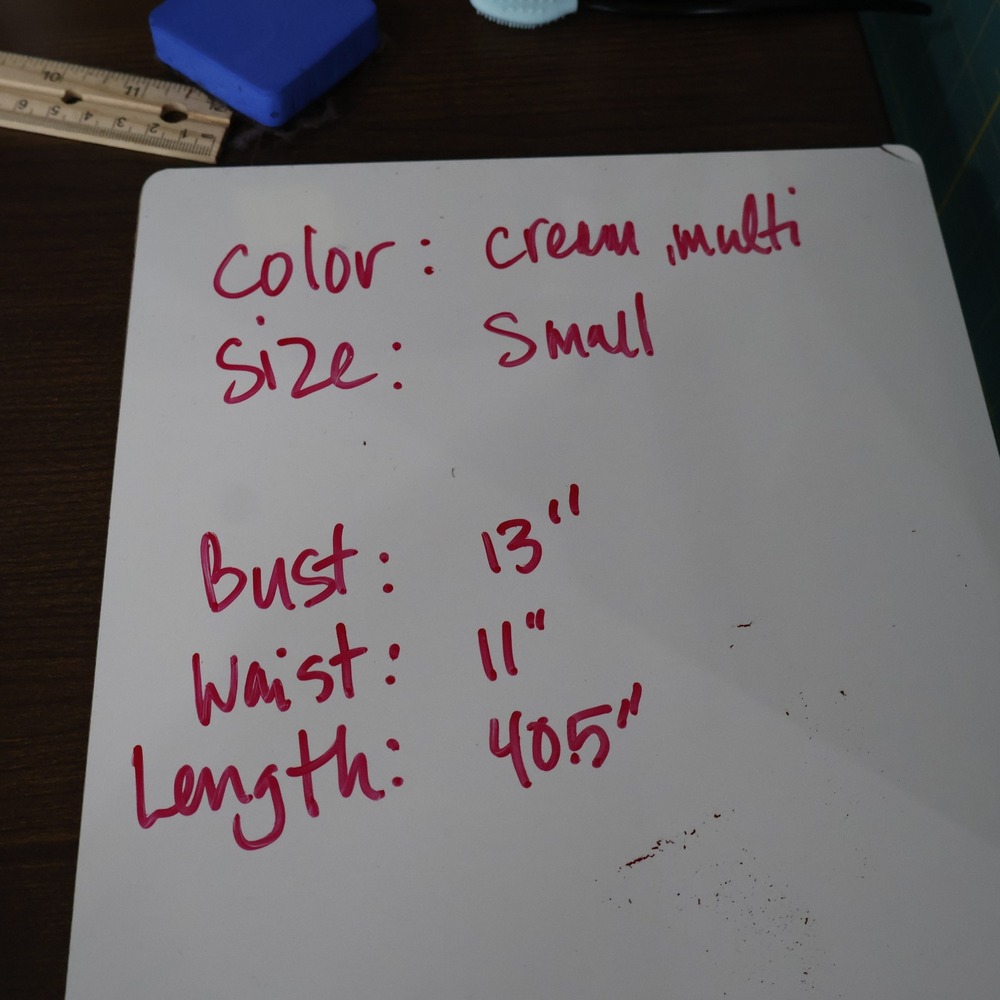 Color: cream, multi
Size: Small
Bust: 13"
Waist: 11"
Length: 40.5"
10 11
6 5 4 3 2 1